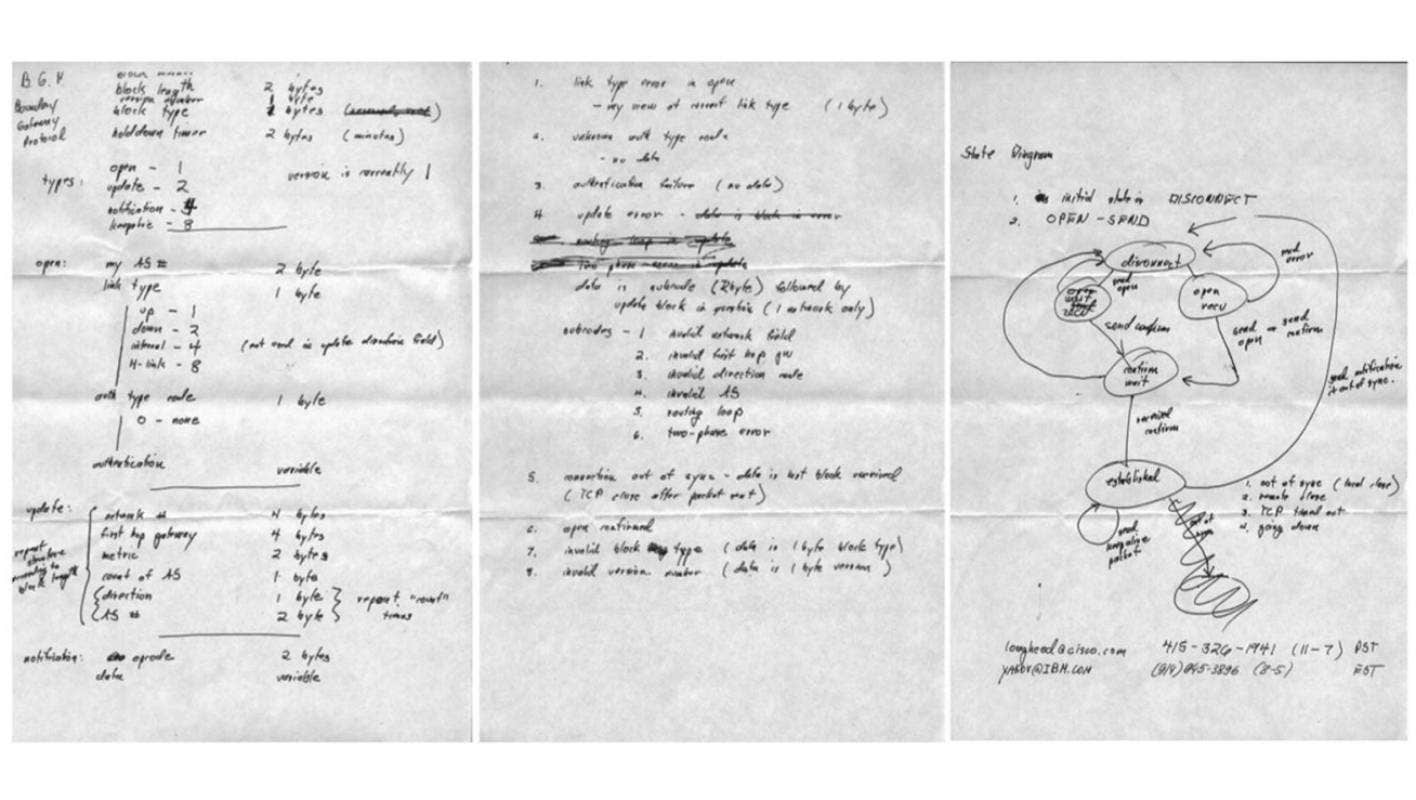 B.G.P
Boundary
Gateway
Protocol
block length 2 bytes
version number 1 byte
block type 2 bytes
holddown timer 2 bytes (minutes)
types:
open - 1
version is currently 1
update - 2
notification - 4
keepalive - 8
open:
my AS # 2 byte
link type 1 byte
up - 1
down - 2
internal - 4 (not used in update direction field)
H-link - 8
auth type code 1 byte
0 - none
authentication variable
update:
network # 4 bytes
first hop gateway 4 bytes
metric 2 bytes
count of AS 1 byte
direction 1 byte
AS # 2 byte
repeat "count" times
repeat
structure
according to
block length
notification: opcode 2 bytes
data variable
1. link type error in open
- my view of correct link type (1 byte)
2. unknown auth type code
- no data
3. authentication failure (no data)
4. update error - data is block in error
routing loop in update
two phase error in update
data is subcode (2 byte) followed by
update block in question (1 network only)
subcodes - 1 invalid network field
2. invalid first hop gw
3. invalid direction code
4. invalid AS
5. routing loop
6. two-phase error
5. connection out of sync - data is last block received
(TCP close after packet out)
6. open confirmed
7. invalid block type (data is 1 byte block type)
8. invalid version number (data is 1 byte version)
State Diagram
1. initial state is DISCONNECT
2. OPEN - SEND
disconnect
send
error
send
open
open
wait
open
recv
send confirm
send
open or send
confirm
confirm
wait
send notification
if out of sync.
received
confirm
established
send
keepalive
packet
out of
sync
1. out of sync (local close)
2. remote close
3. TCP timed out
4. going down
lougheed@cisco.com 415-326-1941 (11-7) PST
YAKOV@IBM.COM (8-5) EST